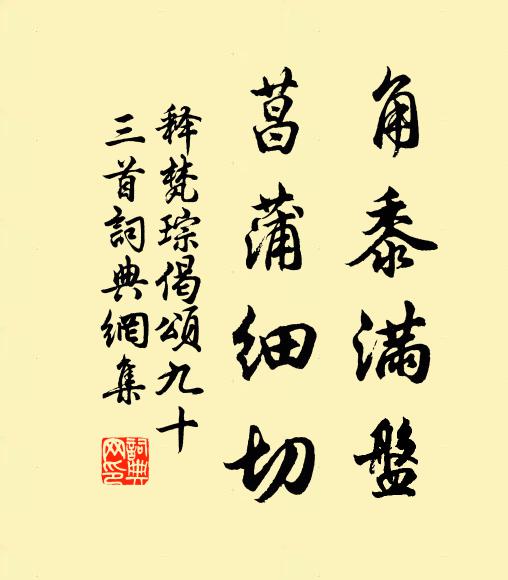 角黍满盤
菖蒲细切
释梵琮偈頌九十
三首詞典網集
詞典
网印